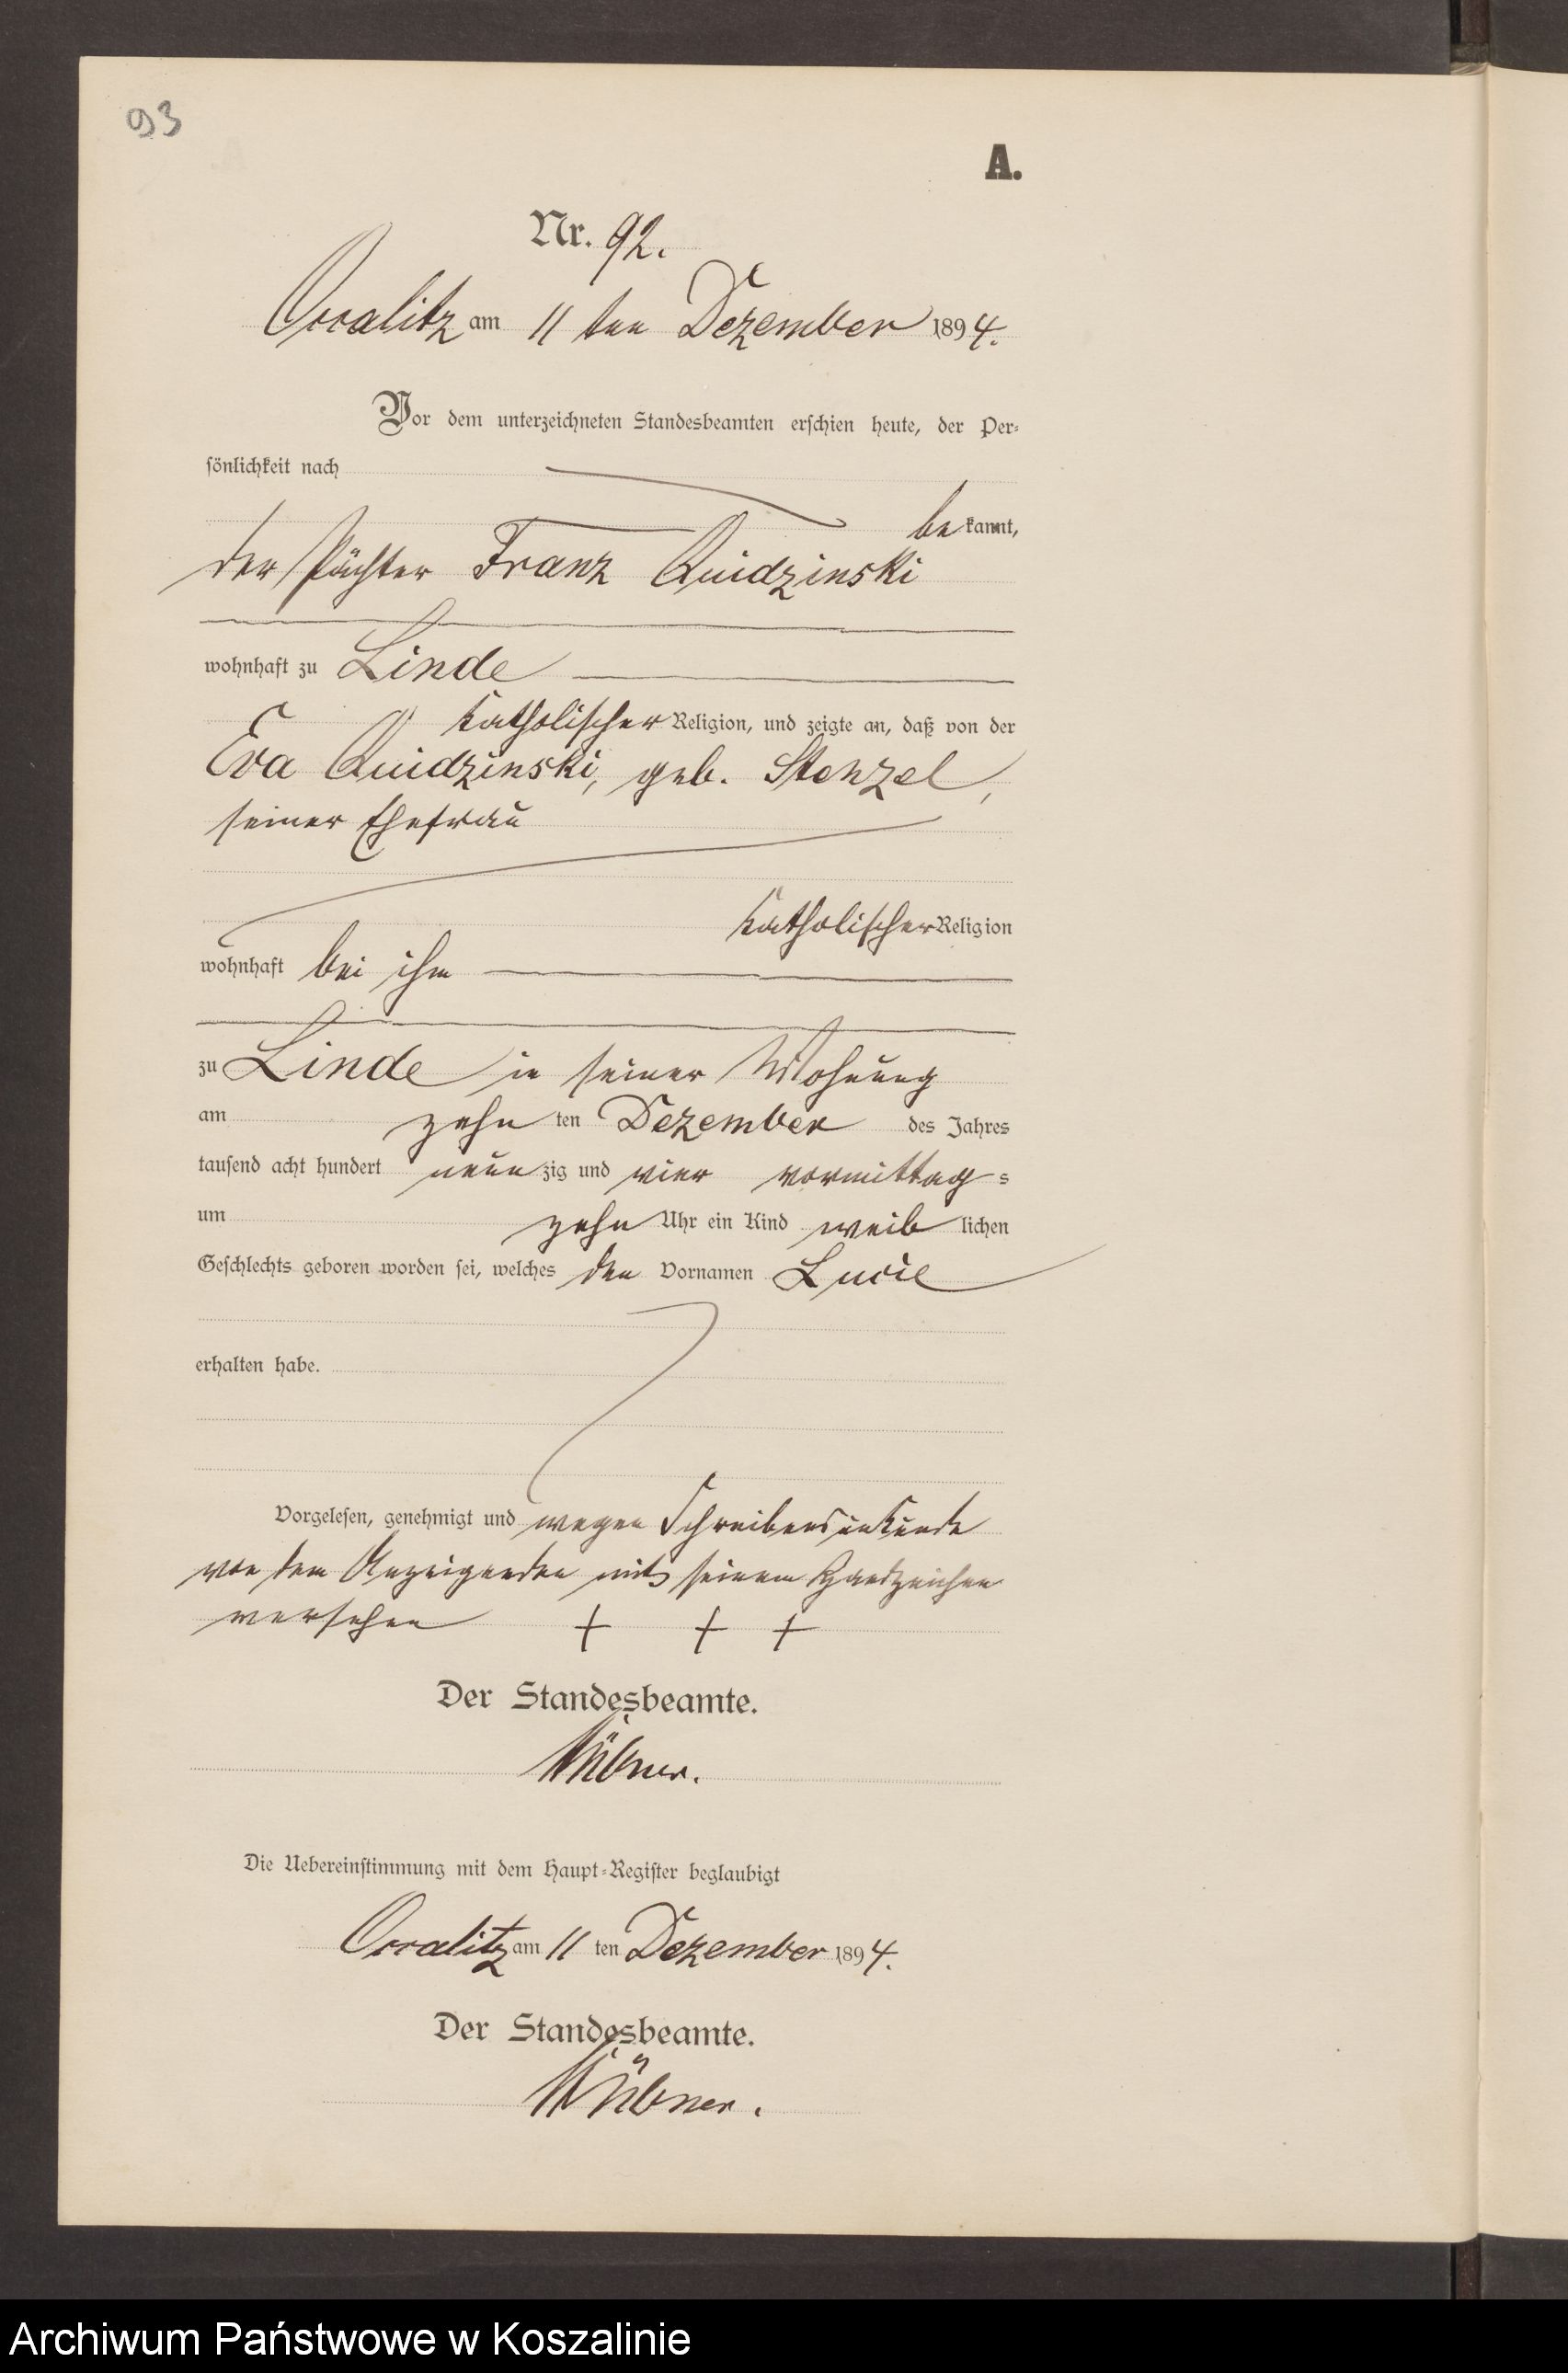 93
A.
Nr. 92.
Occalitz am 11 ten Dezember 1894.
Vor dem unterzeichneten Standesbeamten erschien heute, der Per-
sönlichkeit nach
bekannt,
der Pächter Franz Quidzinski
wohnhaft zu Linde
katholischer Religion, und zeigte an, daß von der
Eva Quidzinski, geb. Stenzel,
seiner Ehefrau
katholischer Religion
wohnhaft bei ihm
zu Linde in seiner Wohnung
am zehn ten Dezember des Jahres
tausend acht hundert neunzig und vier vormittags
um zehn Uhr ein Kind weiblichen
Geschlechts geboren worden sei, welches den Vornamen Lucie
erhalten habe.
Vorgelesen, genehmigt und wegen Schreibensunkunde
von dem Anzeigenden mit seinem Handzeichen
versehen + + +
Der Standesbeamte.
Hübner.
Die Uebereinstimmung mit dem Haupt-Register beglaubigt
Occalitz am 11 ten Dezember 1894.
Der Standesbeamte.
Hübner.
Archiwum Państwowe w Koszalinie